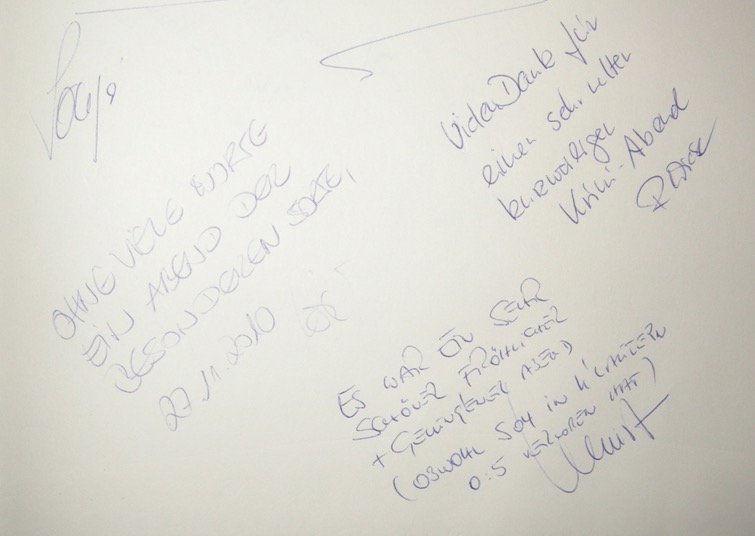 OHNE VIELE WORTE
EIN ABEND DER
BESONDEREN SORTE,
27.11.2010
Vielen Dank für
einen sehr netten
kurzweiligen
Krimi-Abend
ES WAR EIN SEHR
SCHÖNER FRÖHLICHER
+ GELUNGENER ABEND
(OBWOHL S04 IN K'LAUTERN
0:5 VERLOREN HAT)